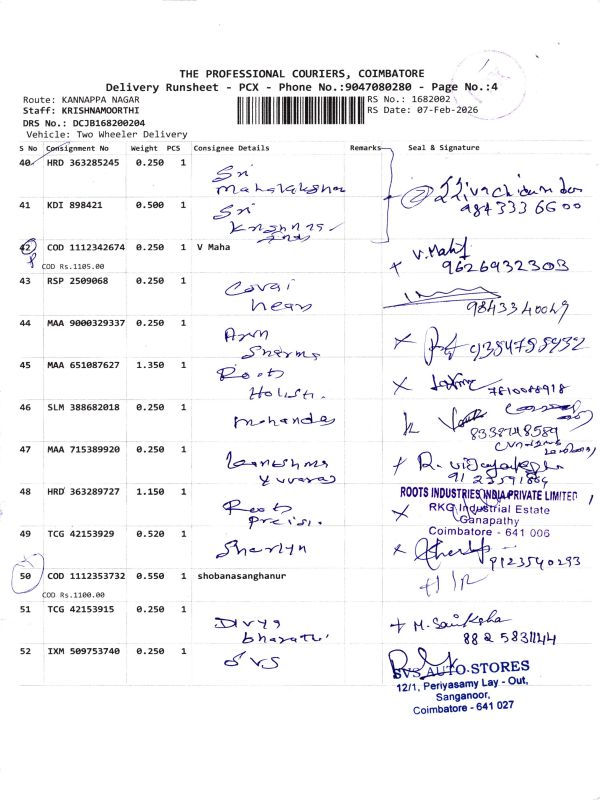 THE PROFESSIONAL COURIERS, COIMBATORE
Delivery Runsheet - PCX - Phone No.:9047080280 - Page No.:4
Route: KANNAPPA NAGAR
RS No.: 1682002
Staff: KRISHNAMOORTHI
RS Date: 07-Feb-2026
DRS No.: DCJB168200204
Vehicle: Two Wheeler Delivery
S No Consignment No Weight PCS Consignee Details Remarks Seal & Signature
40 HRD 363285245 0.250 1 Sri
41 KDI 898421 0.500 1 Sri
9843336600
42 COD 1112342674 0.250 1 V Maha
COD Rs.1105.00
9626932303
43 RSP 2509068 0.250 1 Covai
9843340049
44 MAA 9000329337 0.250 1 Arun
Sharma
45 MAA 651087627 1.350 1 Roots
46 SLM 388682018 0.250 1 mohandas
47 MAA 715389920 0.250 1
yuvaraj
48 HRD 363289727 1.150 1 Roots
Precisi.
ROOTS INDUSTRIES INDIA PRIVATE LIMITED
RKG Industrial Estate
Ganapathy
Coimbatore - 641 006
49 TCG 42153929 0.520 1 Sherlyn
9123540293
50 COD 1112353732 0.550 1 shobanasanghanur
COD Rs.1100.00
51 TCG 42153915 0.250 1 Divya
bharathi
52 IXM 509753740 0.250 1 SVS
SVS AUTO STORES
12/1, Periyasamy Lay - Out,
Sanganoor,
Coimbatore - 641 027